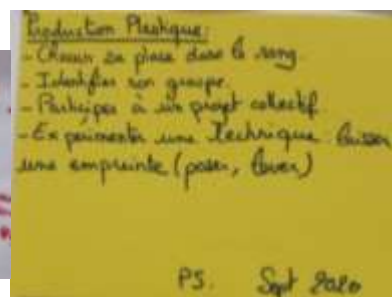 Production Plastique:
- Choisir sa place dans le rang
- Identifier son groupe.
- Participer à un projet collectif.
- Expérimenter une Technique. laisser
une empreinte (poser, lever)
PS. Sept 2020